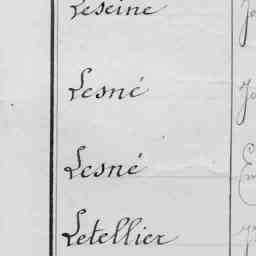 Leseine
Lesné
Lesné
Letellier